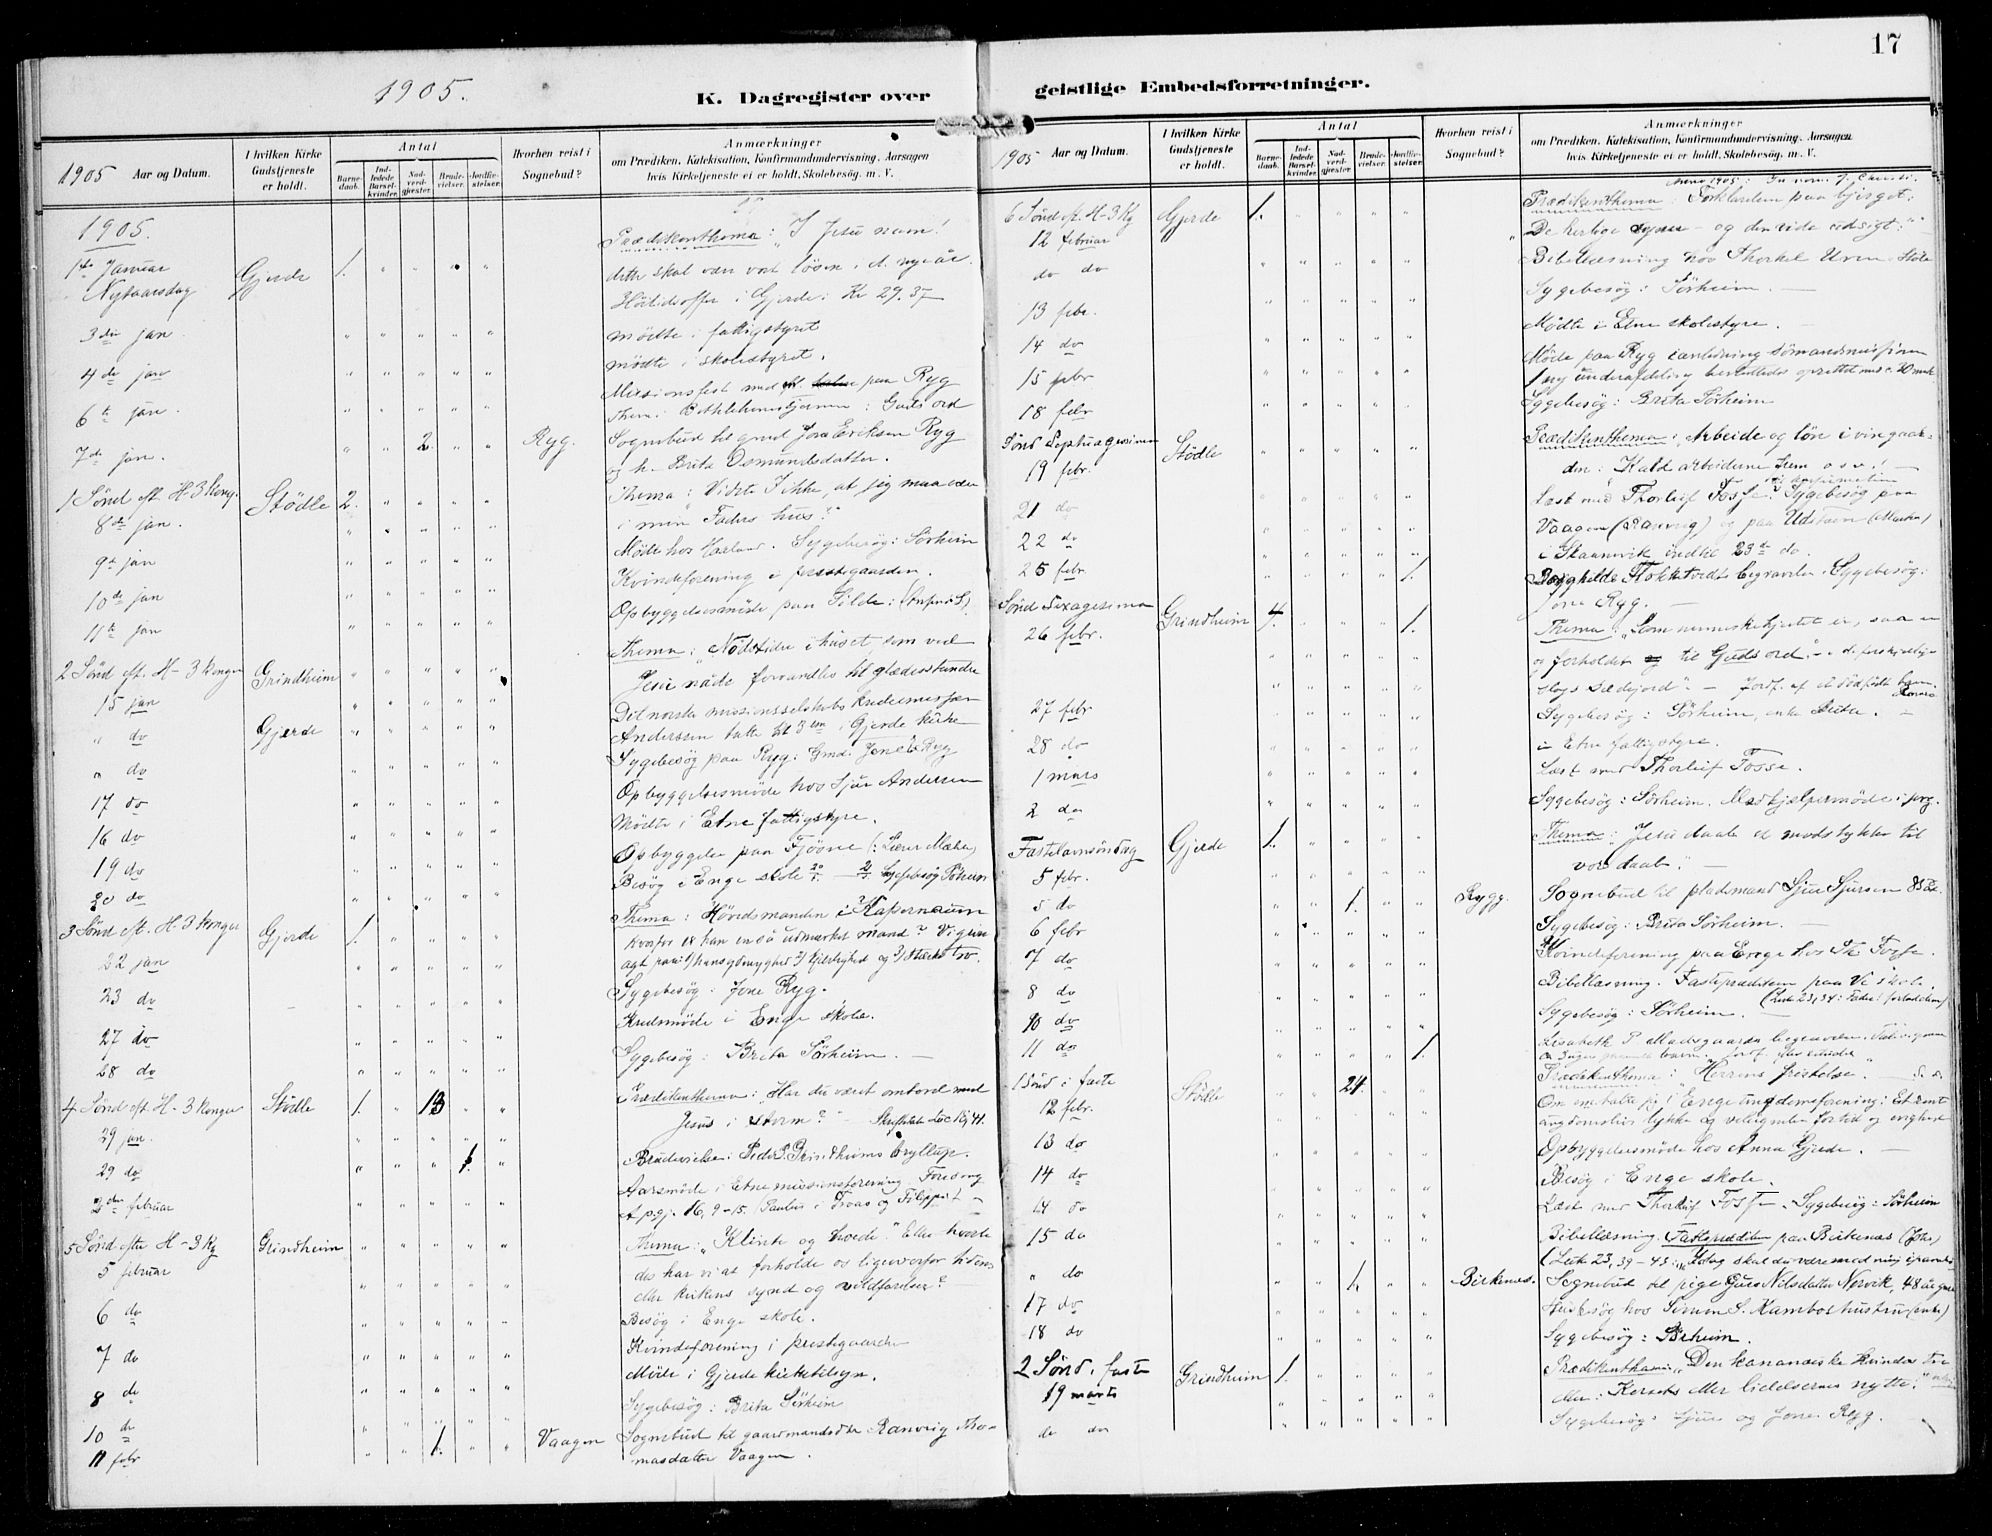 17
1905.
K. Dagregister over geistlige Embedsforretninger.
1905 Aar og Datum.
I hvilken Kirke Gudstjeneste er holdt.
Antal
Barnedaab.
Indledede Barselkvinder.
Nadverdgjester.
Brudevielser.
Jordfæstelser.
Hvorhen reist i Sognebud?
Anmærkninger
om Prædiken, Katekisation, Konfirmandundervisning, Aarsagen
hvis Kirketjeneste ei er holdt, Skolebesøg. m. V.
1905.
Prædikenthema: "I Jesu navn!
1ste Januar Gjerde 1. dette skal være vort løsen i d. nye år.
Nytaarsdag Høitidsoffer i Gjerde: Kr 29.37
3die jan mødte i fattigstyret
4de jan mødte i skolestyret.
6te jan. Missionsfest paa Ryg
Them: Bethlehemstjernen: Guds ord
7de jan. 2 Ryg. Sognebud til gmd Jone Eriksen Ryg
og h. Brita Osmundsdatter.
1 Sønd eft. H-3 Kong. Stødle 2. Thema: Vidste I ikke, at jeg maa være
8de jan. i min Faders hus?"
9de jan Møde hos Harland. Sygebesøg: Sørheim
10de jan Kvindeforening i prestegaarden.
11te jan Opbyggelsesmøde paa Silde:
Thema: "Nødstider i huset, som ved
2 Sønd eft. H-3 Konger Grindheim Jesu nåde forvandles til glædesstunder
15 jan Det norske missionsselskabs
" do Gjerde Anderssen talte kl 3 em i Gjerde kirke
" do Sygebesøg paa Ryg: Gmd. Jone E Ryg
17 do Opbyggelsesmøde hos Sjur Andersen
16 do Mødte i Etne fattigstyre.
19 do Opbyggelse paa Fjøsne
20 do Besøg i Enge skole Sygebesøg Sørheim
3 Sønd eft. H-3 Konger Gjerde 1. Thema: Høvedsmanden i Kapernaum
22 jan Hvorfor er han en så udmærket mand? Vi giver
agt paa: 1) hans ydmyghed 2) kjærlighed og 3) stærke tro.
23 do Sygebesøg: Jone Ryg.
27 do Kredsmøde i Enge skole.
28 do Sygebesøg: Brita Sørheim.
4 Sønd eft H-3 Konger Stødle 1. 13 Prædikenthema: "Har du været ombord med
29 jan. Jesus i storm?"
29 do 1. Brudevielse: Peder P. Grindheims bryllup.
2den februar Aarsmøde i Etne missionsforening. Foredrag
Ap.gj. 16, 9-15. (Paulus i Troas og Filippi)
5 Sønd efter H-3 Kg Grindheim Thema: "Klinte og hvede." Eller hvorledes
5 februar des har vi at forholde os ligeoverfor tidens
eller kirkens synd og vildfarelser?
6 do Besøg i Enge skole.
7 do Kvindeforening i prestegaarden
8 do Møde i Gjerde kirketilsyn.
10 do Sygebesøg: Brita Sørheim
11 febr 1. Vaagen Sognebud til gaardmandsdtr Ranveig Thomasdatter Vaagen.
1905 Aar og Datum.
I hvilken Kirke Gudstjeneste er holdt.
Antal
Barnedaab.
Indledede Barselkvinder.
Nadverdgjester.
Brudevielser.
Jordfæstelser.
Hvorhen reist i Sognebud?
Anmærkninger
om Prædiken, Katekisation, Konfirmandundervisning, Aarsagen
hvis Kirketjeneste ei er holdt, Skolebesøg. m. V.
6 Sønd eft. H-3 Kg Gjerde 1. Prædikenthema: Forklarelsen paa bjerget:
12 februar "De herlige syner - og den vide udsigt."
do do Bibellæsning hos Thorkel Uren Støle
13 febr. Sygebesøg: Sørheim.
14 do Mødte i Etne skolestyre.
15 febr Møde paa Ryg i anledning sømandsmissionen
18 febr Sygebesøg: Brita Sørheim
Sønd Septuagesima Stødle Prædikenthema: "Arbeide og løn i vingaarden:
19 febr. Kald arbeiderne frem osv!
21 do Læst med Thorleif Fosse. Sygebesøg paa
22 do Vaagen (Ranveig) og paa Udstaen
i Skaanevik indtil 23de do.
25 febr. 1. Ragnhilde Stokketvedts begravelse. Sygebesøg:
Jone Ryg.
Sønd Sexagesima Grindheim 4. 1. Thema: "Som menneskehjertet er, saa er
26 febr. og forholdet til Guds ord."
27 febr Sygebesøg: Sørheim, enke Brita.
28 do i Etne fattigstyre.
1 mars Læst med Thorleif Fosse.
2 do Sygebesøg: Sørheim. Medhjælpermøde i prg.
Fastelavnsøndag Gjerde 1. Thema: Jesu daab et modstykke til
5 febr. vor daab."
5 do 1. Rygg. Sognebud til pladsmand Sjur Sjursen
6 febr Sygebesøg: Brita Sørheim.
7 do Kvindeforening paa Enge hos Th. Fosse.
8 do Bibellæsning. Fasteprædiken paa Vi skole.
10 do Sygebesøg: Sørheim.
11 do 1. Lisabeth P Madsgaards begravelse.
1 Sønd i faste Stødle 24 Prædikenthema: Herrens fristelse.
12 febr. Om em talte jeg i Enge ungdomsforening: Et rent
ungdomslivs lykke og velsignelse
13 do Opbyggelsesmøde hos Anna Gjerde.
14 do Besøg i Enge skole.
14 do Læst med Thorleif Fosse. Sygebesøg: Sørheim
15 do Bibellæsning. Fasteprædiken paa Birkenæs
(Luk 23, 39-43: "Idag skal du være med mig i paradis
" do 1. Birkenæs. Sognebud til pige Guro Nilsdatter Nervik, 48 år gml
17 do husbesøg hos Simon S. Kambos hustru
18 do Sygebesøg: Sørheim.
2 Sønd. i faste Grindheim 1. Prædikenthema: "Den kananæiske kvindes tro
19 marts eller: Korsets eller lidelsernes nytte."
do do Sygebesøg: Sjur og Jone Ryg.